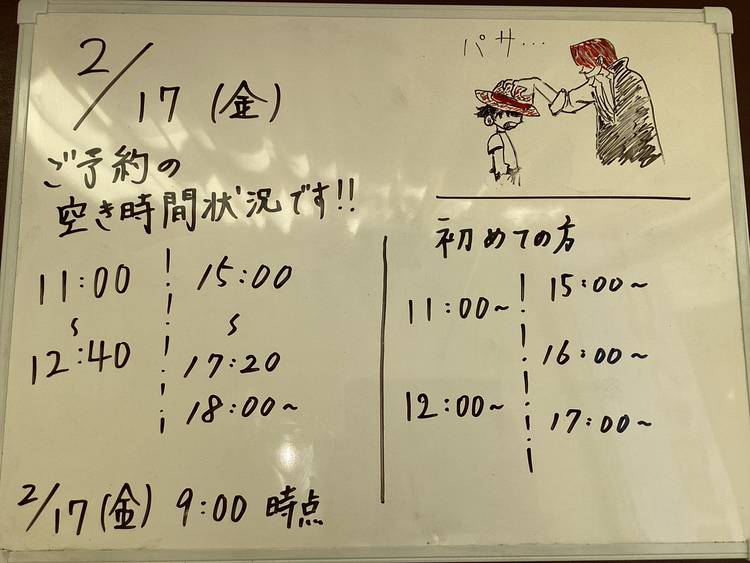 2/17 (金)
パサ…
ご予約の
空き時間状況です!!
11:00
~
12:40
15:00
~
17:20
18:00~
初めての方
11:00~
12:00~
15:00~
16:00~
17:00~
2/17(金) 9:00 時点